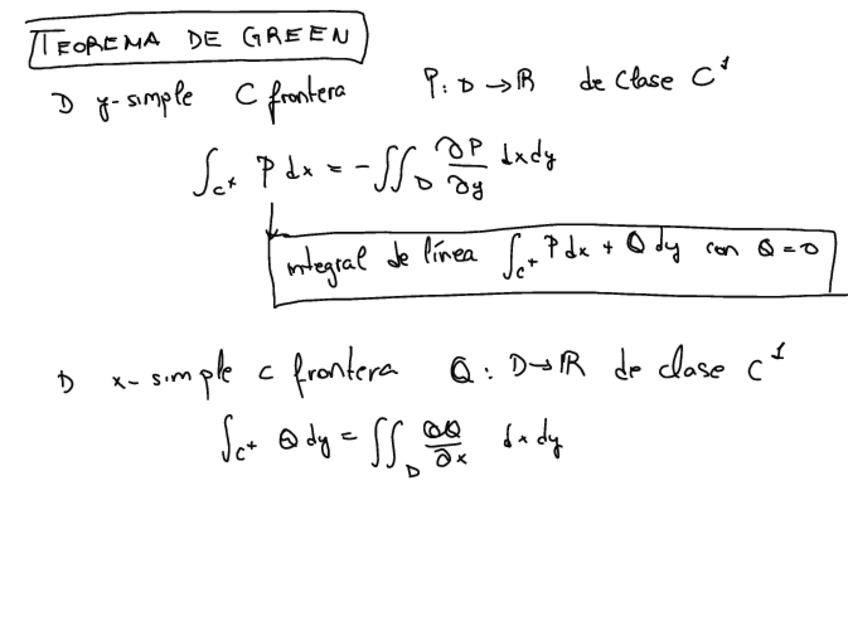 TEOREMA DE GREEN
D y-simple C frontera P: D → ℝ de clase C¹
∫_{C⁺} P dx = - ∬_D ∂P/∂y dxdy
integral de línea ∫_{C⁺} P dx + Q dy con Q = 0
D x-simple C frontera Q: D → ℝ de clase C¹
∫_{C⁺} Q dy = ∬_D ∂Q/∂x dxdy